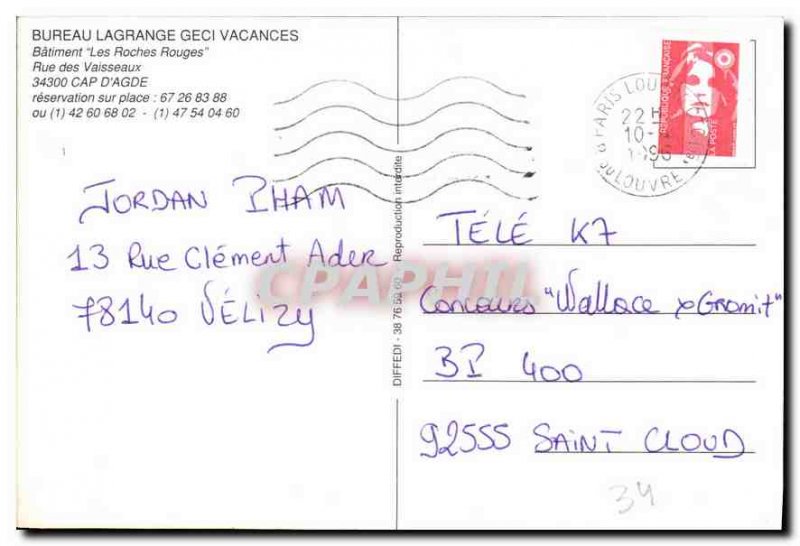 BUREAU LAGRANGE GECI VACANCES
Bâtiment "Les Roches Rouges"
Rue des Vaisseaux
34300 CAP D'AGDE
réservation sur place : 67 26 83 88
ou (1) 42 60 68 02 - (1) 47 54 04 60
REPUBLIQUE FRANÇAISE
LA POSTE
PARIS LOUVRE
22H
10-
1996
LOUVRE
JORDAN PHAM
13 Rue Clément Ader
78140 VÉLIZY
DIFFEDI - 38 76 59 60 Reproduction interdite
CPAPHIL
TÉLÉ K7
Concours "Wallace & Gromit"
BP 400
92555 SAINT CLOUD
34